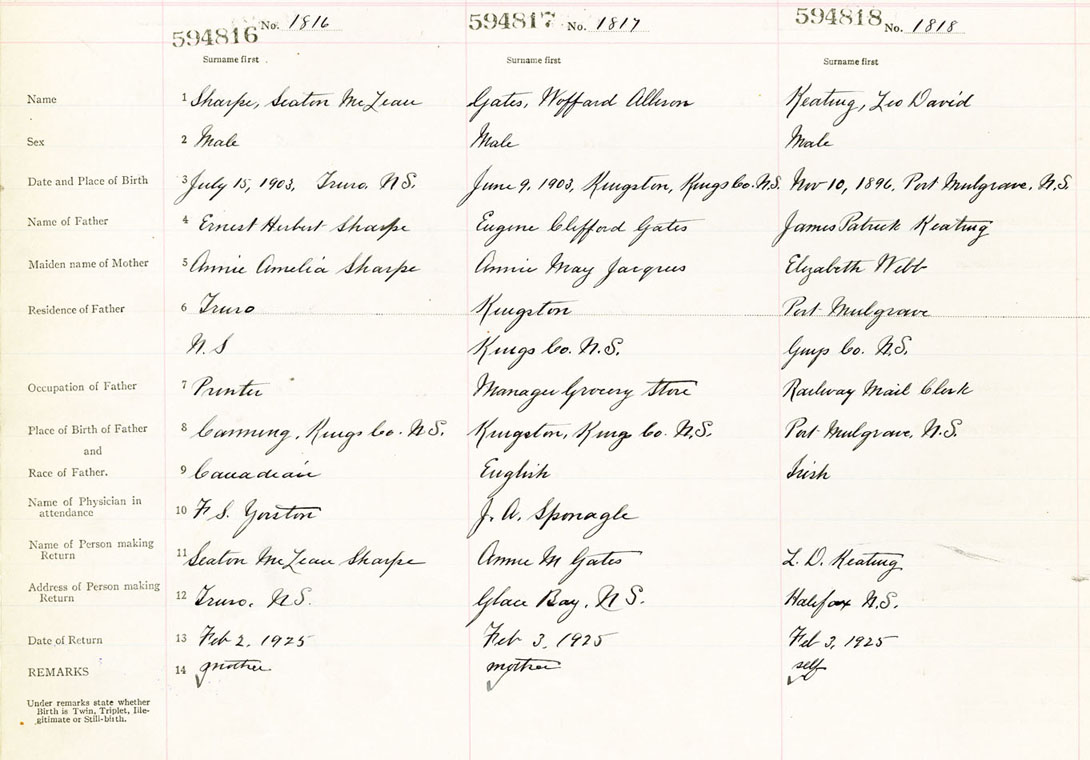 594816 No. 1816 594817 No. 1817 594818 No. 1818
Surname first Surname first Surname first
Name 1 Sharpe, Seaton McLean Gates, Wofford Allison Keating, Leo David
Sex 2 Male Male Male
Date and Place of Birth 3 July 15, 1903, Truro, N.S. June 9, 1903, Kingston, Kings Co. N.S. Nov 10, 1896, Port Mulgrave, N.S.
Name of Father 4 Ernest Herbert Sharpe Eugene Clifford Gates James Patrick Keating
Maiden name of Mother 5 Annie Amelia Sharpe Annie May Jacques Elizabeth Webb
Residence of Father 6 Truro Kingston Port Mulgrave
N.S Kings Co. N.S. Guys Co. N.S.
Occupation of Father 7 Printer Manager Grocery Store Railway Mail Clerk
Place of Birth of Father 8 Canning, Kings Co. N.S. Kingston, Kings Co. N.S. Port Mulgrave, N.S.
and
Race of Father. 9 Canadian English Irish
Name of Physician in
attendance 10 F S. Yorston J. A. Sponagle
Name of Person making
Return 11 Seaton McLean Sharpe Annie M Gates L. D. Keating
Address of Person making
Return 12 Truro, N.S. Glace Bay, N.S. Halifax N.S.
Date of Return 13 Feb 2, 1925 Feb 3, 1925 Feb 3, 1925
REMARKS 14 mother mother self
Under remarks state whether
Birth is Twin, Triplet, Ille-
gitimate or Still-birth.